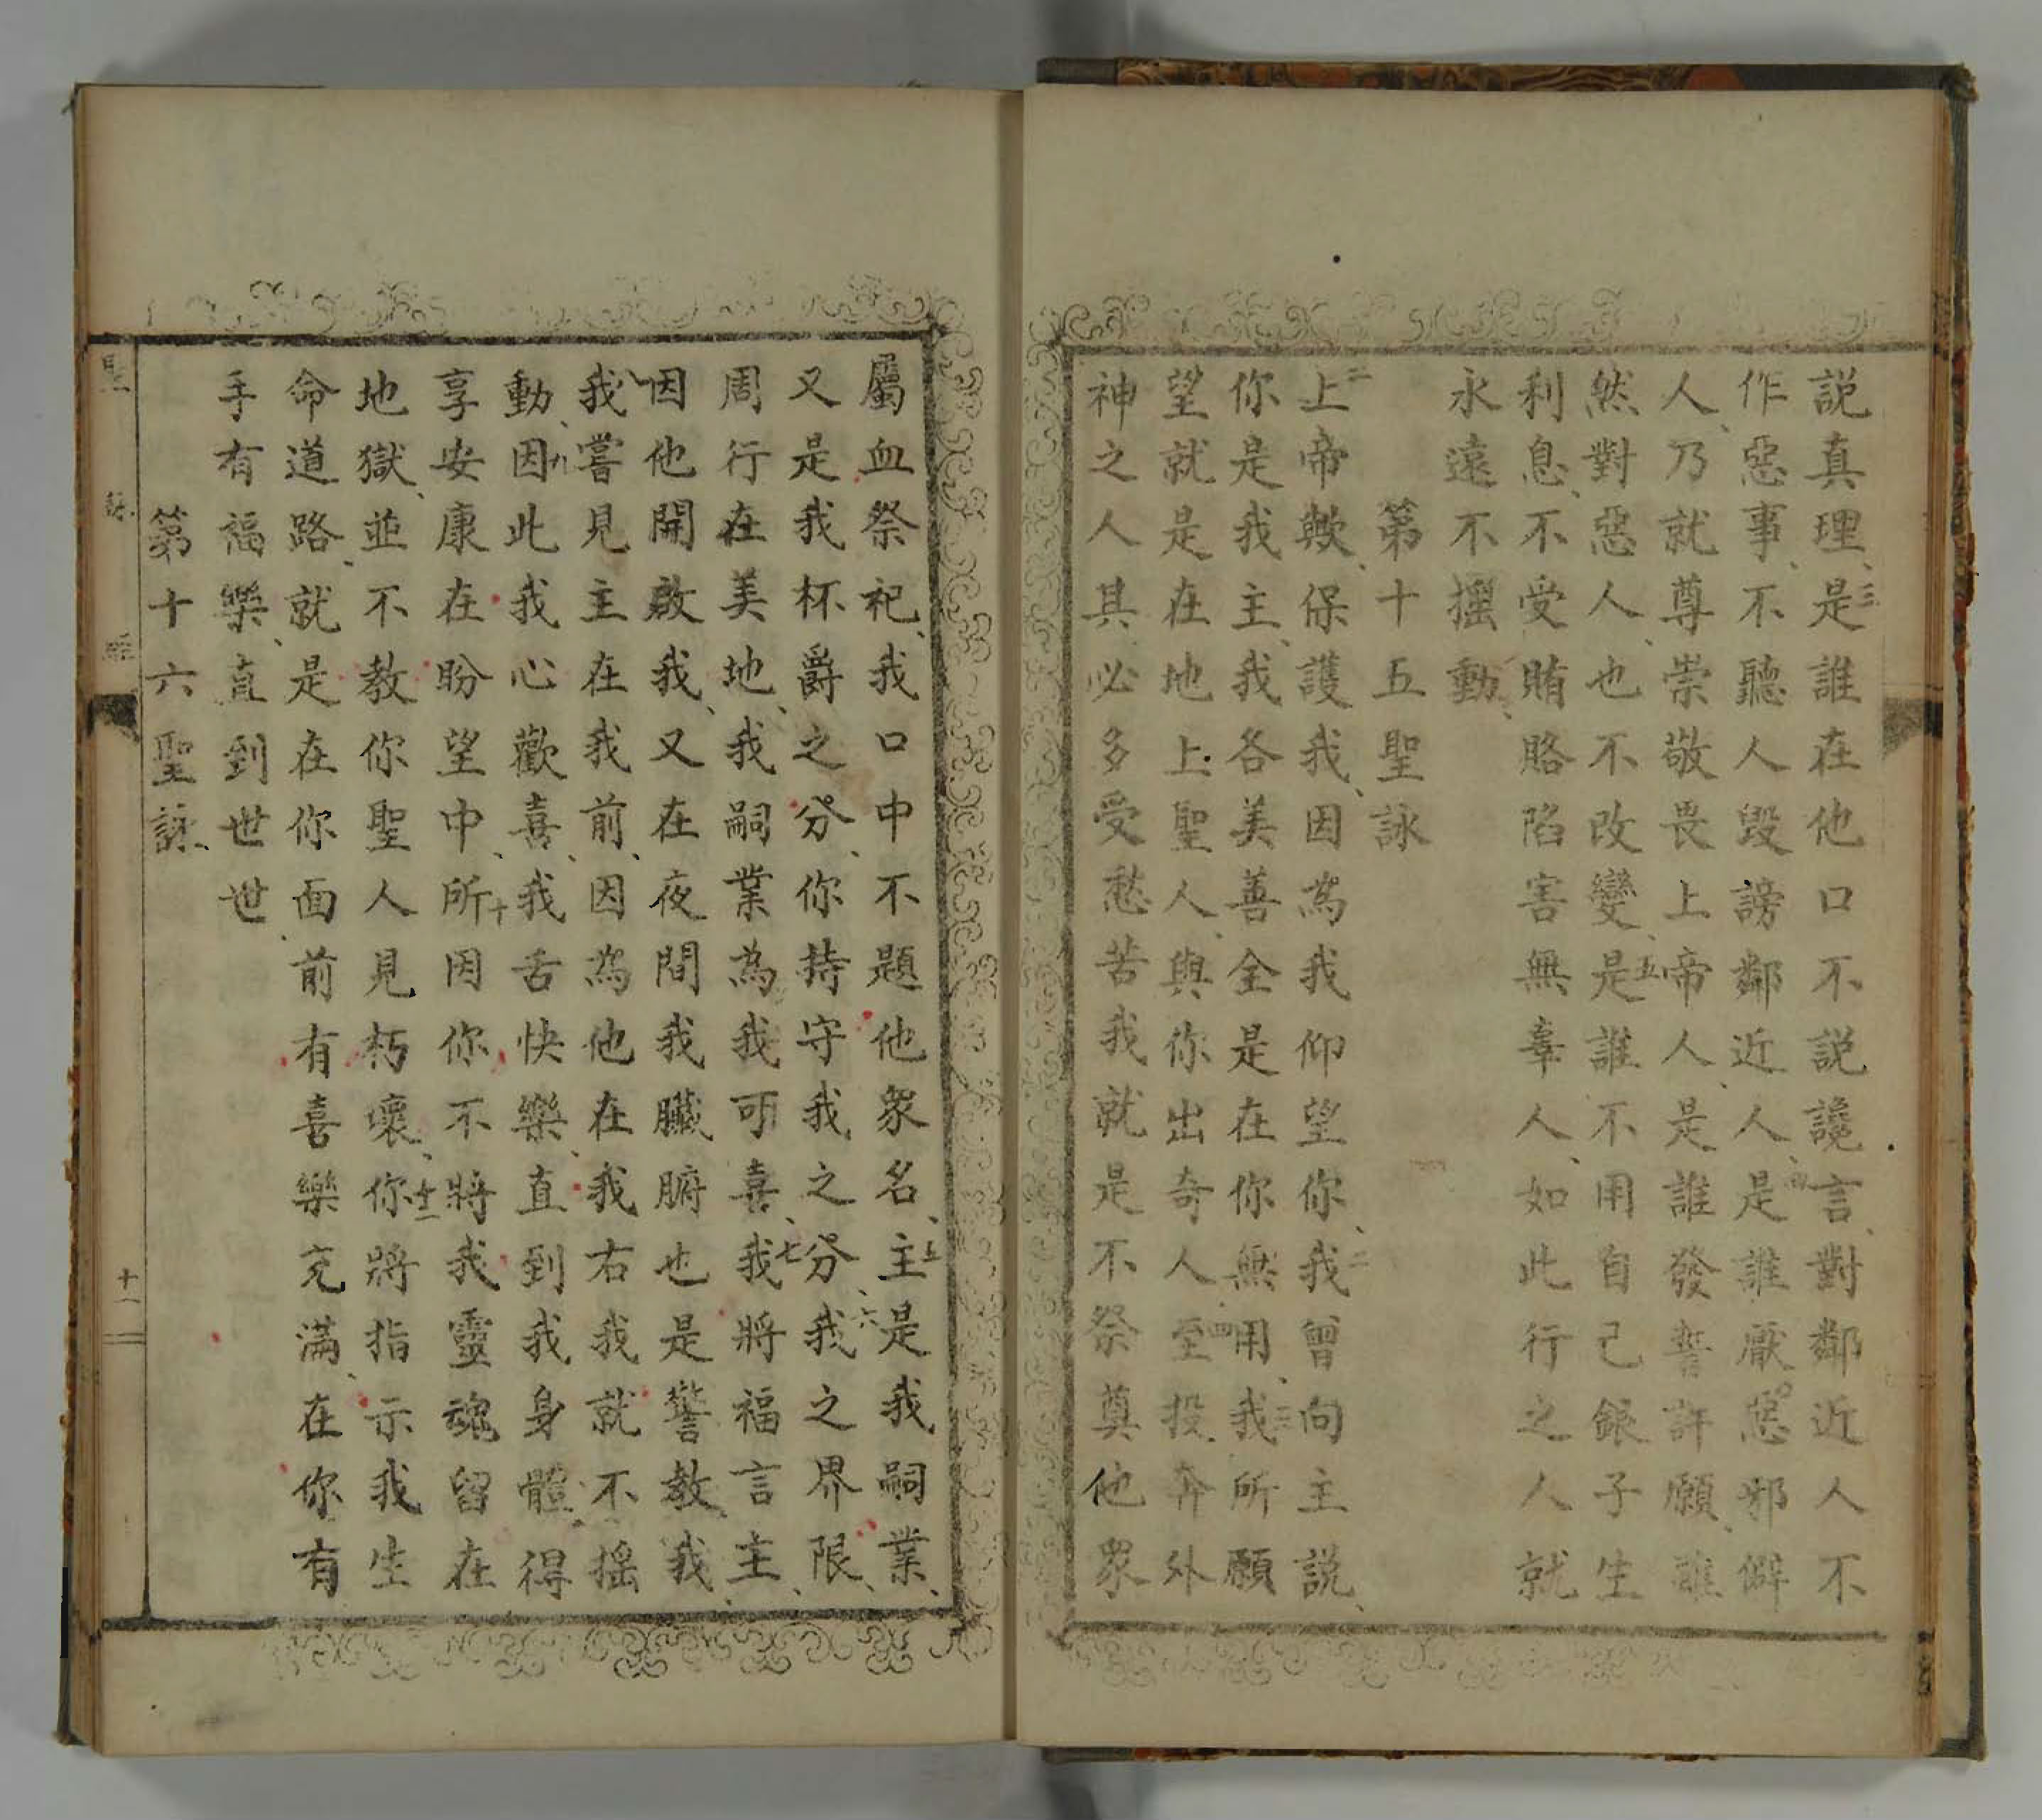 説真理、三是誰在他口不説讒言、對鄰近人不
作惡事、不聽人毀謗鄰近人、四是誰厭惡邪僻
人、乃就尊崇敬畏上帝人、是誰發誓許願、誰
然對惡人、也不改變、五是誰不用自己銀子生
利息、不受賄賂陷害無辜人、如此行之人就
永遠不搖動、
第十五聖詠
一上帝歟、保護我、因為我仰望你、二我曾向主説、
你是我主、我各美善全是在你無用、三我所願
望就是在地上聖人、與你出奇人、四至投奔外
神之人其必多受愁苦我就是不祭奠他眾
屬血祭祀、我口中不題他眾名、五主是我嗣業、
又是我杯爵之分、你持守我之分、六我之界限、
周行在美地、我嗣業為我可喜、七我將福言主、
因他開啟我、又在夜間我臟腑也是警教我、
八我嘗見主在我前、因為他在我右我就不搖
動、九因此我心歡喜、我舌快樂、直到我身體、得
享安康在盼望中、十所因你不將我靈魂留在
地獄、並不教你聖人見朽壞、十一你將指示我生
命道路、就是在你面前有喜樂充滿、在你有
手有福樂、直到世世世
第十六聖詠、
聖詠經
十一